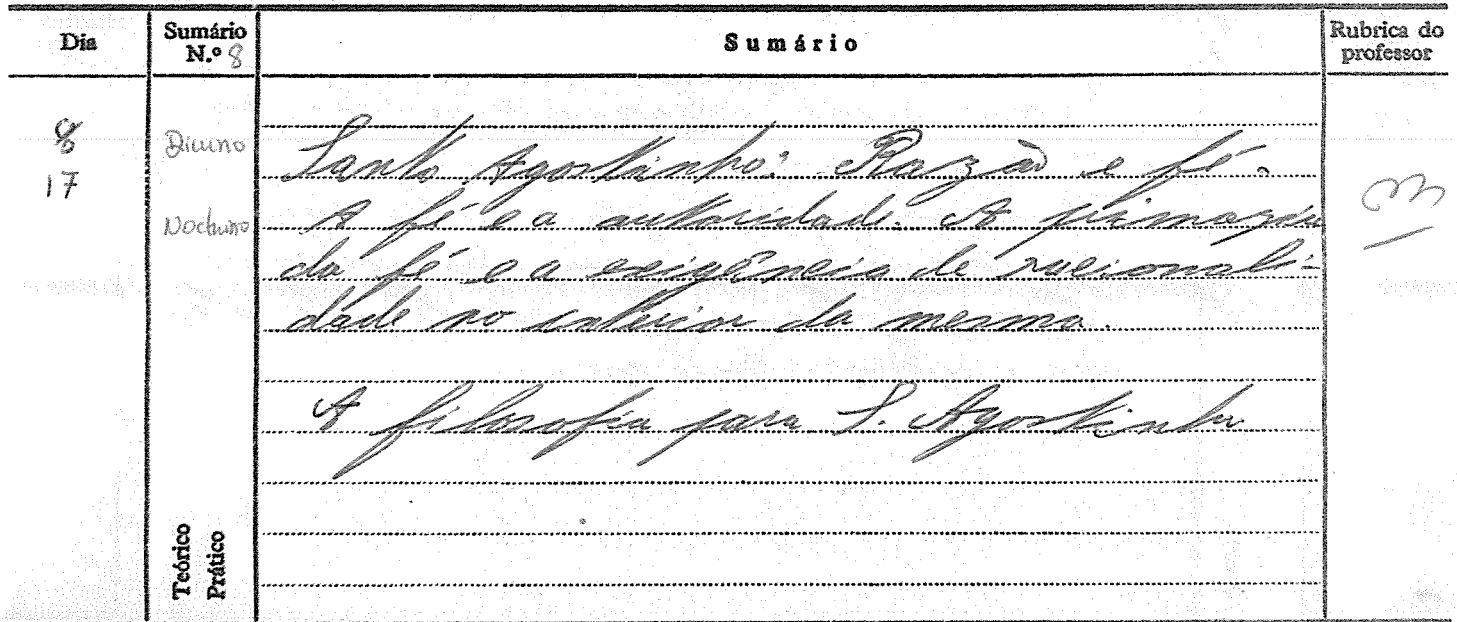 Dia
Sumário
N.º 8
Sumário
Rubrica do
professor
8
17
Diurno
Nocturno
Santo Agostinho: Razão e fé.
A fé e a autoridade. A primazia
da fé e a exigência de racionali-
dade no interior da mesma.
A filosofia para S. Agostinho
Teórico
Prático